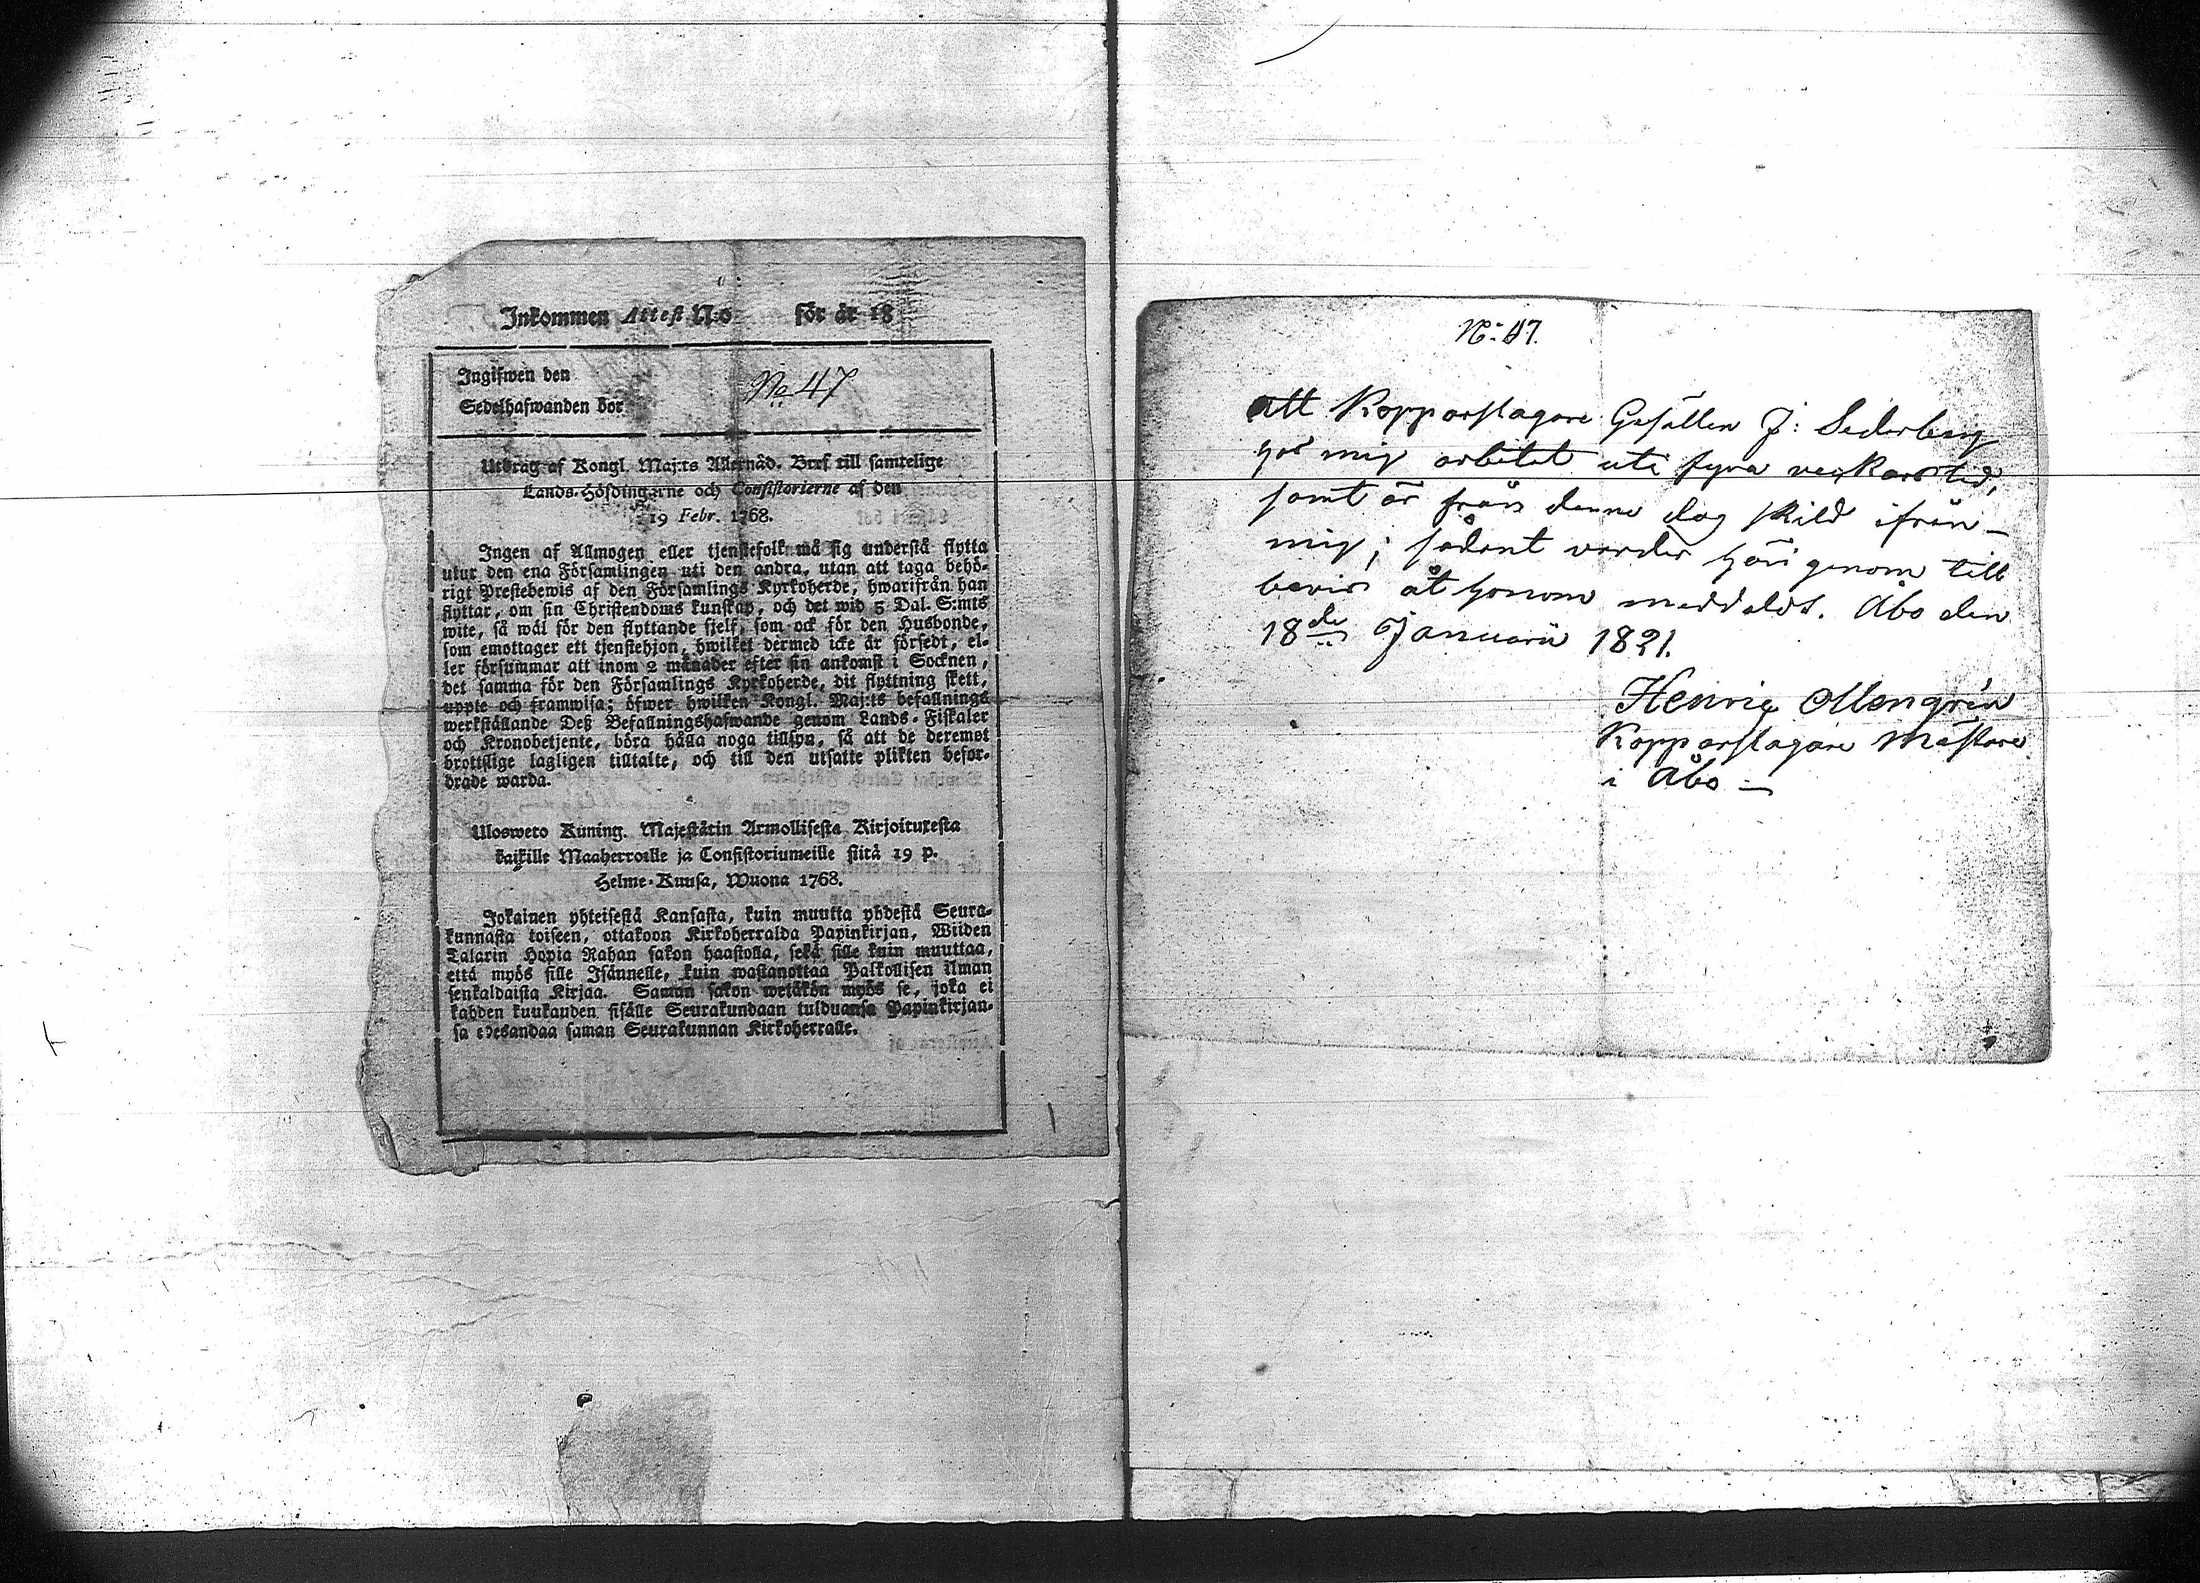 Inkommen Attest N:o för år 18
Ingifwen den
No 47
Sedelhafwanden bor
Utdrag af Kongl. Maj:ts Allernåd. Bref till samtelige
Lands-Höfdingarne och Consistorierne af den
19 Febr. 1768.
Ingen af Allmogen eller tjenstefolk må sig understå flytta
utur den ena Församlingen uti den andra, utan att taga behö-
rigt Prestebewis af den Församlings Kyrkoherde, hwarifrån han
flyttar, om sin Christendoms kunskap, och det wid 5 Dal. S:mts
wite, så wäl för den flyttande sjelf, som ock för den Husbonde,
som emottager ett tjenstehjon, hwilket dermed icke är försedt, el-
ler försummar att inom 2 månader efter sin ankomst i Socknen,
det samma för den Församlings Kyrkoherde, dit flyttning skett,
uppte och framwisa; öfwer hwilken Kongl. Maj:ts befallnings
werkställande Deß Befallningshafwande genom Lands-Fiskaler
och Kronobetjente, böra hålla noga tillsyn, så att de deremot
brottslige lagligen tilltalte, och till den utsatte plikten befor-
drade warda.
Ulosweto Kuning. Majestätin Armollisesta Kirjoituxesta
kaikille Maaherroille ja Consistoriumeille siitä 19 p.
Helme-Kuusa, Wuona 1768.
Jokainen yhteisestä Kansasta, kuin muutta yhdestä Seura-
kunnasta toiseen, ottakoon Kirkoherralda Papinkirjan, Wiiden
Talarin Hopia Rahan sakon haastolla, sekä sille kuin muuttaa,
että myös sille Isännelle, kuin wastanottaa Palkollisen ilman
senkaldaista Kirjaa. Saman sakon wetäkön myös se, joka ei
kahden kuukauden sisälle Seurakundaan tulduansa Papinkirjan-
sa edesandaa saman Seurakunnan Kirkoherralle.
No: 47.
att Kopparslagare Gesällen J: Sederberg
hos mig arbetat uti fyra veckors tid,
samt är från denne dag skild ifrån
mig; sådant varder häri genom till
bevis åt honom meddelt. Åbo den
18de Januarii 1821.
Henric
Kopparslagare Mästare
i Åbo